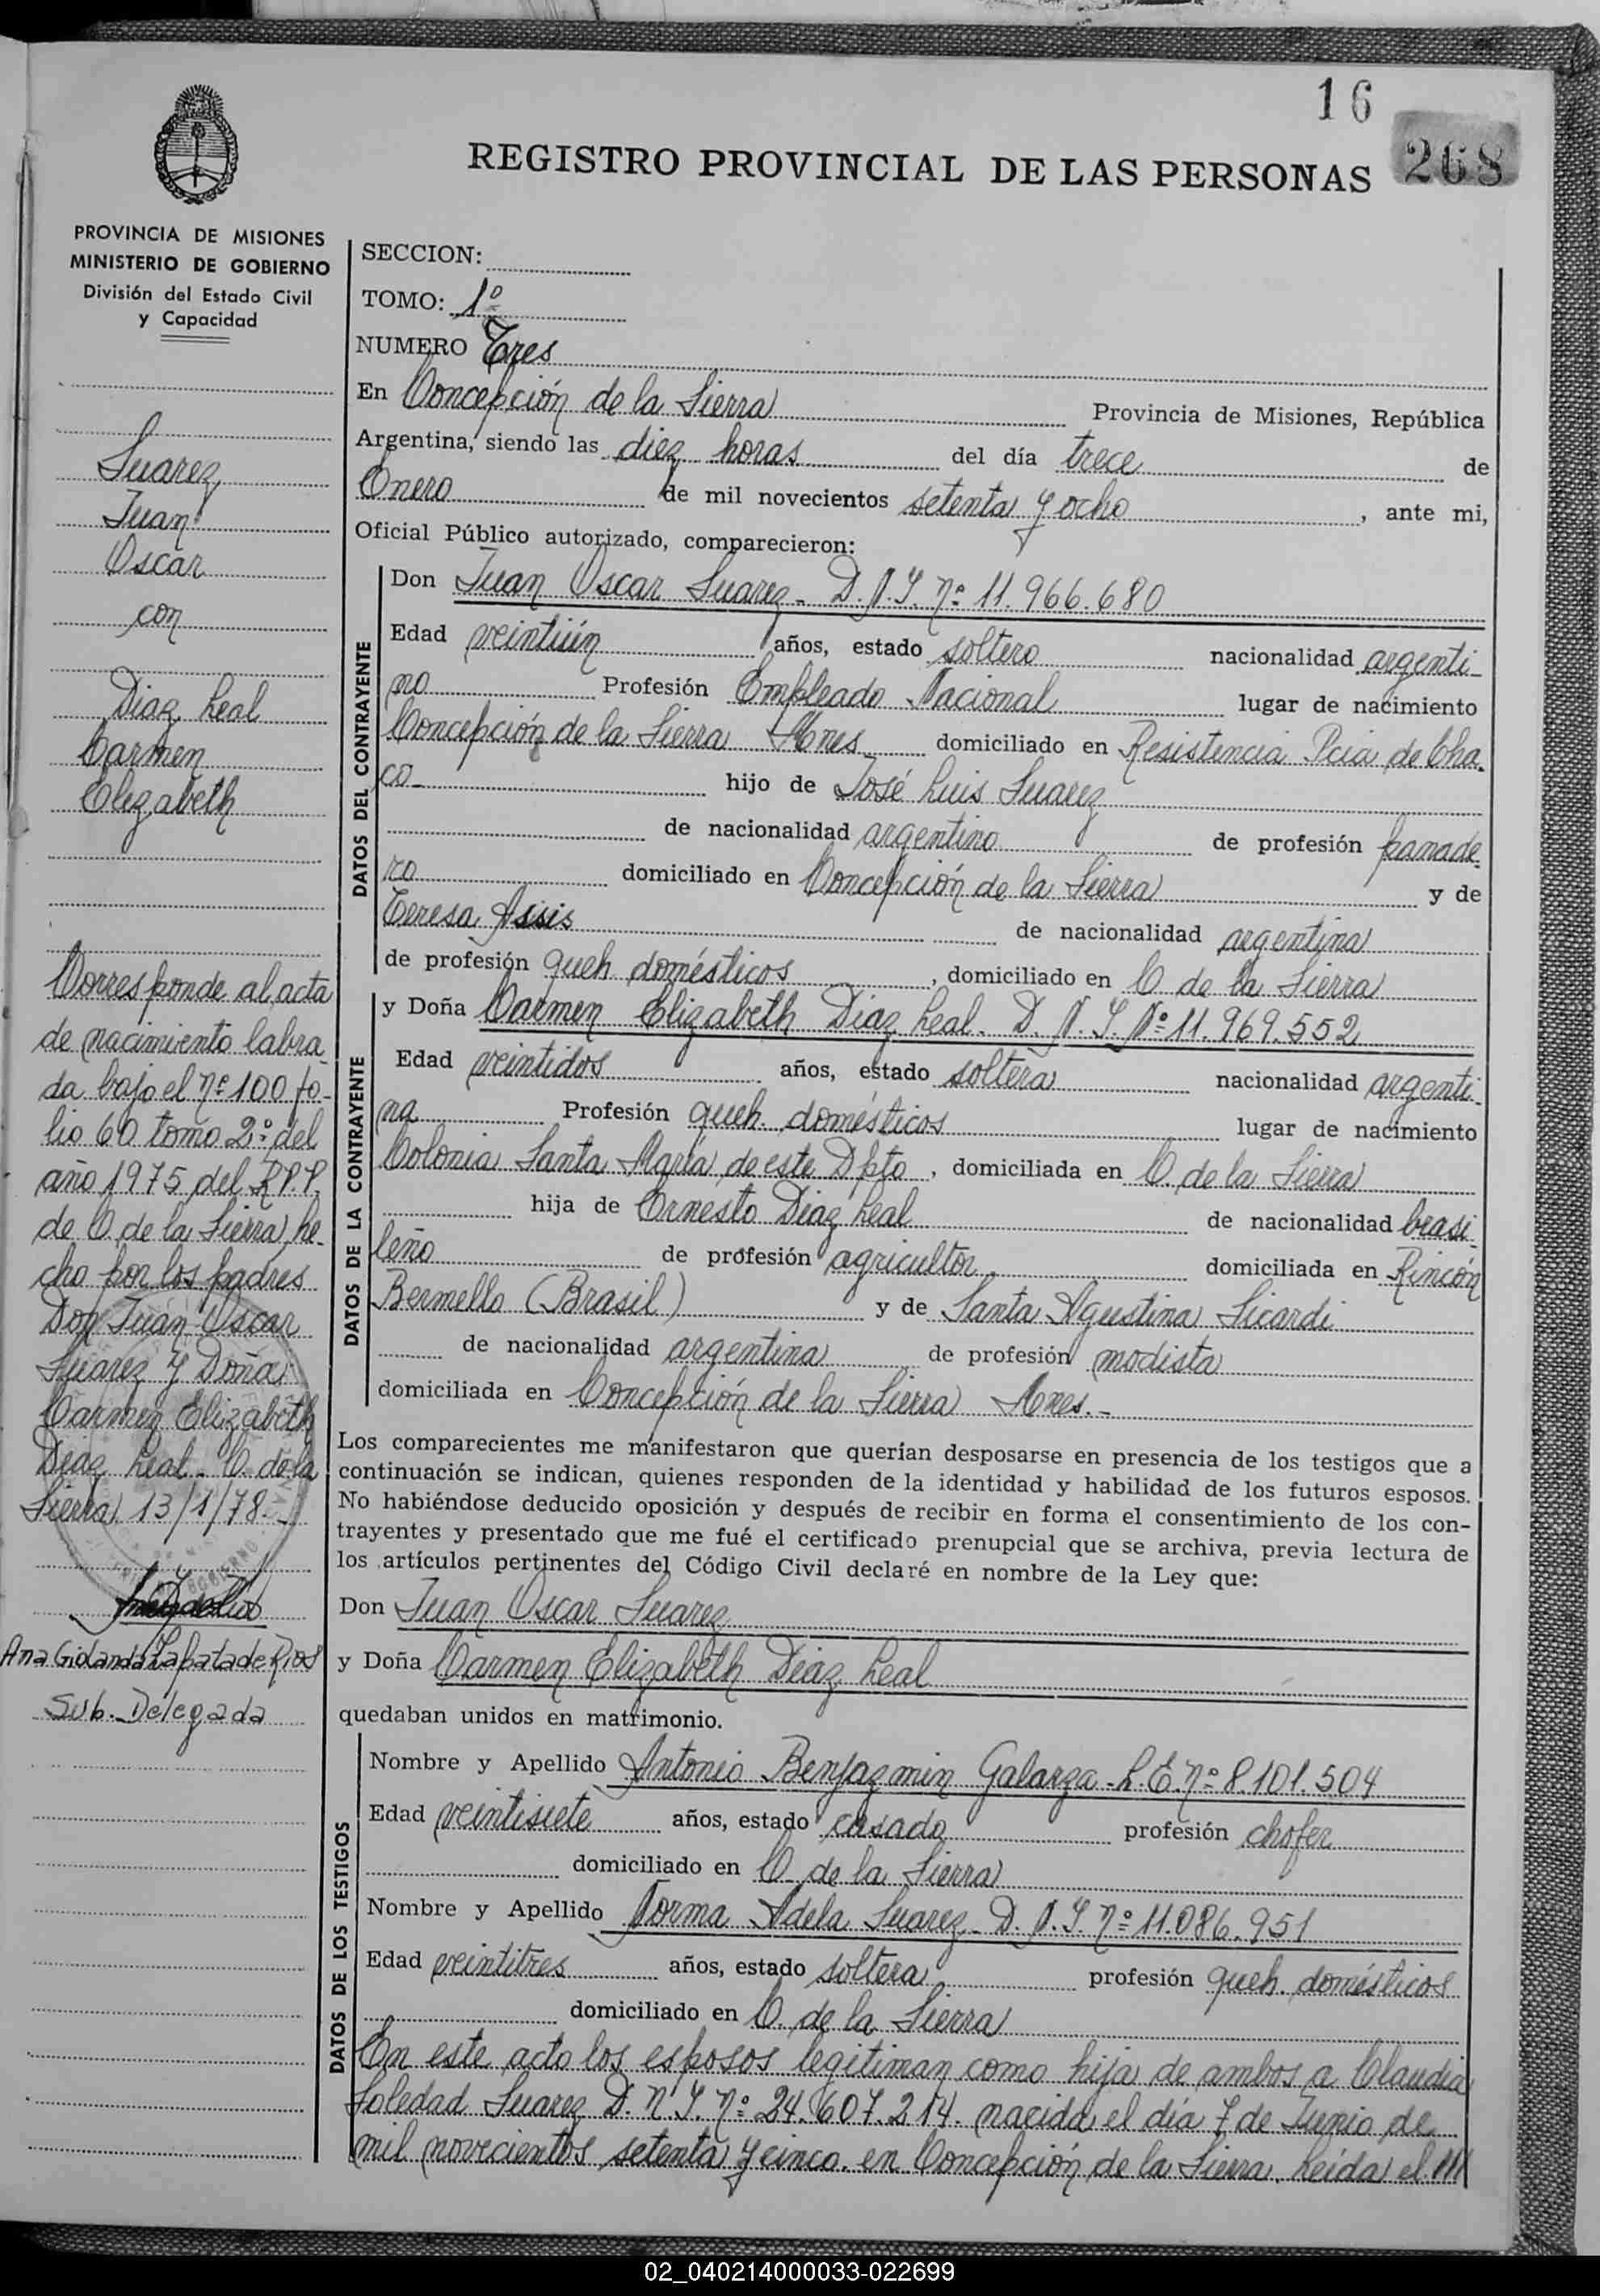 16
268
REGISTRO PROVINCIAL DE LAS PERSONAS
PROVINCIA DE MISIONES
MINISTERIO DE GOBIERNO
División del Estado Civil
y Capacidad
Suarez
Juan
Oscar
con
Diaz Leal
Carmen
Elizabeth
Corresponde al acta
de nacimiento labra
da bajo el nº 100 fo-
lio 60 tomo 2º del
año 1975 del R.P.P.
de C. de la Sierra, he-
cho por los padres
Don Juan Oscar
Suarez y Doña
Carmen Elizabeth
Diaz Leal - C. de la
Sierra 13/1/78.-
Ana Giolanda Zapata de Rios
Sub-Delegada
SECCION:
TOMO: 1º
NUMERO Tres
En Concepción de la Sierra Provincia de Misiones, República
Argentina, siendo las diez horas del día trece de
Enero de mil novecientos setenta y ocho, ante mi,
Oficial Público autorizado, comparecieron:
DATOS DEL CONTRAYENTE
Don Juan Oscar Suarez - D.N.I. nº 11.966.680
Edad veintiún años, estado soltero nacionalidad argenti-
no Profesión Empleado Nacional lugar de nacimiento
Concepción de la Sierra Mnes domiciliado en Resistencia Pcia de Cha-
co- hijo de José Luis Suarez
de nacionalidad argentino de profesión panade-
ro domiciliado en Concepción de la Sierra y de
Teresa Assis de nacionalidad argentina
de profesión queh domésticos, domiciliado en C de la Sierra
DATOS DE LA CONTRAYENTE
y Doña Carmen Elizabeth Diaz Leal. D.N.I. Nº 11.969.552
Edad veintidos años, estado soltera nacionalidad argenti-
na Profesión queh. domésticos lugar de nacimiento
Colonia Santa María de este Dpto, domiciliada en C. de la Sierra
hija de Ernesto Diaz Leal de nacionalidad brasi-
leño de profesión agricultor domiciliada en Rincón
Bermello (Brasil) y de Santa Agustina Sicardi
de nacionalidad argentina de profesión modista
domiciliada en Concepción de la Sierra Mnes.-
Los comparecientes me manifestaron que querían desposarse en presencia de los testigos que a
continuación se indican, quienes responden de la identidad y habilidad de los futuros esposos.
No habiéndose deducido oposición y después de recibir en forma el consentimiento de los con-
trayentes y presentado que me fué el certificado prenupcial que se archiva, previa lectura de
los artículos pertinentes del Código Civil declaré en nombre de la Ley que:
Don Juan Oscar Suarez
y Doña Carmen Elizabeth Diaz Leal
quedaban unidos en matrimonio.
DATOS DE LOS TESTIGOS
Nombre y Apellido Antonio Benjazmin Galarza - L.E. nº 8.101.504
Edad veintisiete años, estado casado profesión chofer
domiciliado en C. de la Sierra
Nombre y Apellido Norma Adela Suarez - D.N.I. nº 11.086.951
Edad veintitres años, estado soltera profesión queh. domésticos
domiciliado en C. de la Sierra
En este acto los esposos legitiman como hija de ambos a Claudia
Soledad Suarez D.N.I. nº 24.607.214. nacida el día 7 de Junio de
mil novecientos setenta y cinco. en Concepción de la Sierra. Leída el
02_040214000033-022699